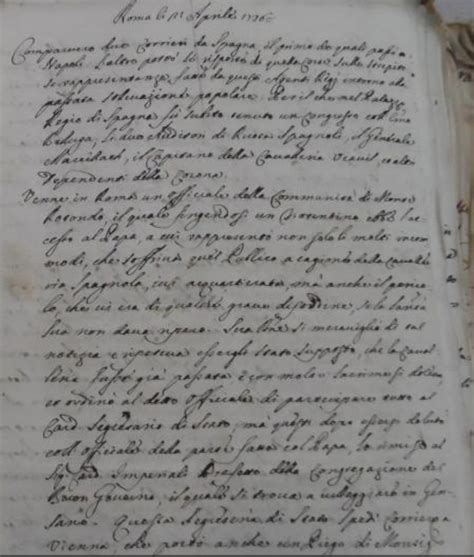 Roma li p.º Aprile 1736
Comparvero due Corrieri da Spagna, il primo de quali passò a
Napoli. L'altro portò le risposte di quella Corte sulle
rappresentanze fatte da questi Agenti Regj intorno alla
passata sollevazione popolare. Per il che nel Palazzo
Regio di Spagna fù subito tenuto un Congresso coll'Em.o
Belluga, li due Auditori di Ruota Spagnoli, il Generale
il Capitano della Cavalleria
Dipendenti della Corona.
Venne in Roma un Officiale della Communità di Monte
Rotondo, il quale fingendosi un ebbe l'ac-
cesso al Papa, a cui rappresentò non solo li molti incom-
modi, che soffriva quel Publico a cagione della Cavalle-
ria Spagnola, ivi acquartierata, mà anche il perico-
lo, che vi era di qualche grave disordine, se la Santità
Sua non dava riparo. Sua Sant.à si meravigliò di tal
notizia e rispose essergli stato supposto, che la Caval-
leria fusse già passata e con molte lacrime
ordinò al detto Officiale di partecipare tutto al
Card. Segretario di Stato, ma questi dopo essersi doluto
coll'Officiale della parte fatta col Papa, lo rimise al
Sig. Card. Imperiali Prefetto della Congregazione del
Buon Governo, il quale si trova a villeggiare in Gen-
sano. Questa Segreteria di Stato spedì Corriere a
Vienna, che portò anche un Piego di Monsig.